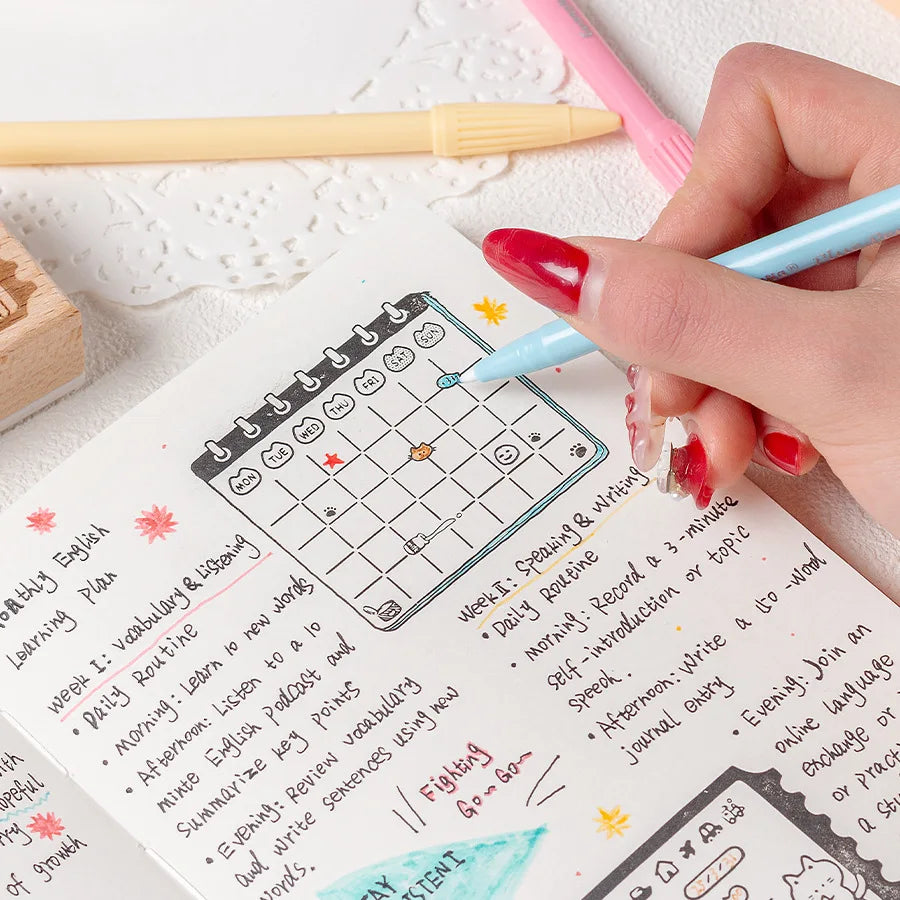 MON TUE WED THU FRI SAT SUN
Monthly English
Learning Plan
Week I: Vocabulary & Listening
• Daily Routine
• Morning: Learn 10 new words
• Afternoon: Listen to a 10
minte English Podcast and
summarize key points
• Evening: Review vocabulary
and write sentences using new
words.
Week II: Speaking & Writing
• Daily Routine
Morning: Record a 3-minute
self-introduction or topic
speech.
• Afternoon: Write a 120-word
journal entry
• Evening: Join an
online language
exchange or
or practi
a st
Fighting
Go~ Go~
opeful
of growth